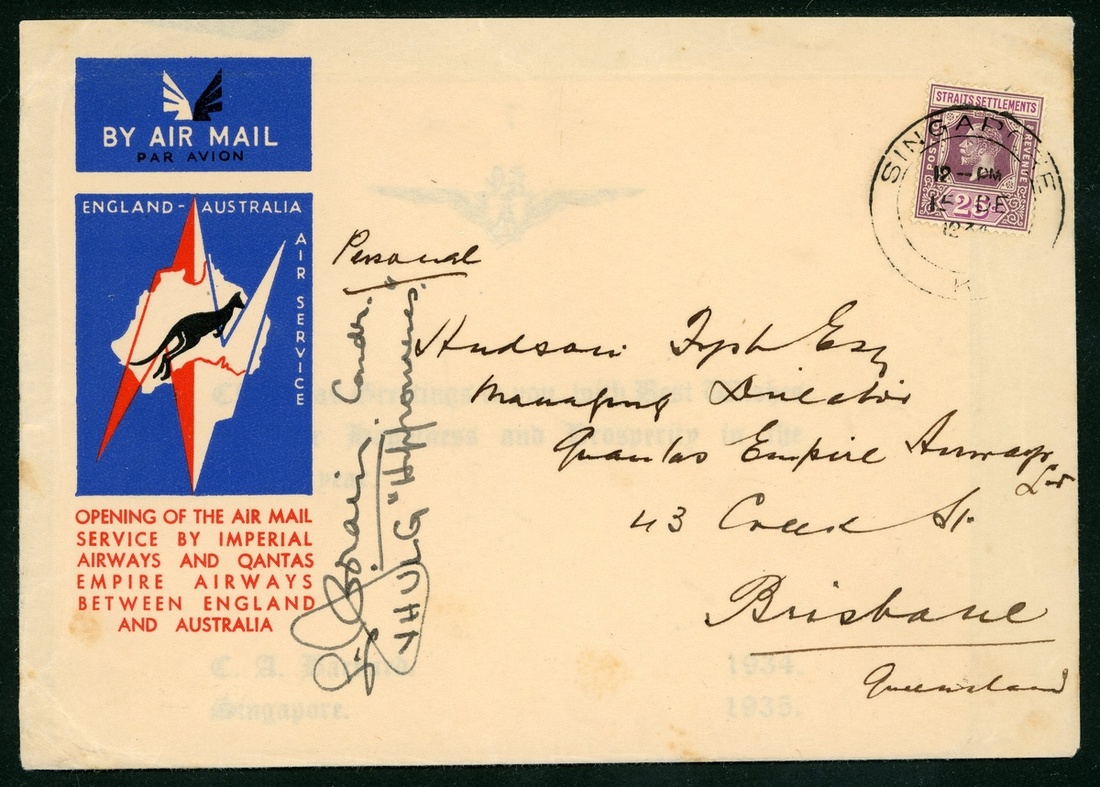 BY AIR MAIL
PAR AVION
ENGLAND - AUSTRALIA
AIR SERVICE
OPENING OF THE AIR MAIL
SERVICE BY IMPERIAL
AIRWAYS AND QANTAS
EMPIRE AIRWAYS
BETWEEN ENGLAND
AND AUSTRALIA
STRAITS SETTLEMENTS
POSTAGE
REVENUE
SINGAPORE
12 -- PM
DE
Personal
Hudson Fysh Esq
Managing Director
Quantas Empire Airways
Ld
43 Creek St.
Brisbane
Queensland
VHULG "Hippomenes."
Greetings to you with Best Wishes
Happiness and Prosperity in the
year.
C. A.
1934.
Singapore.
1935.